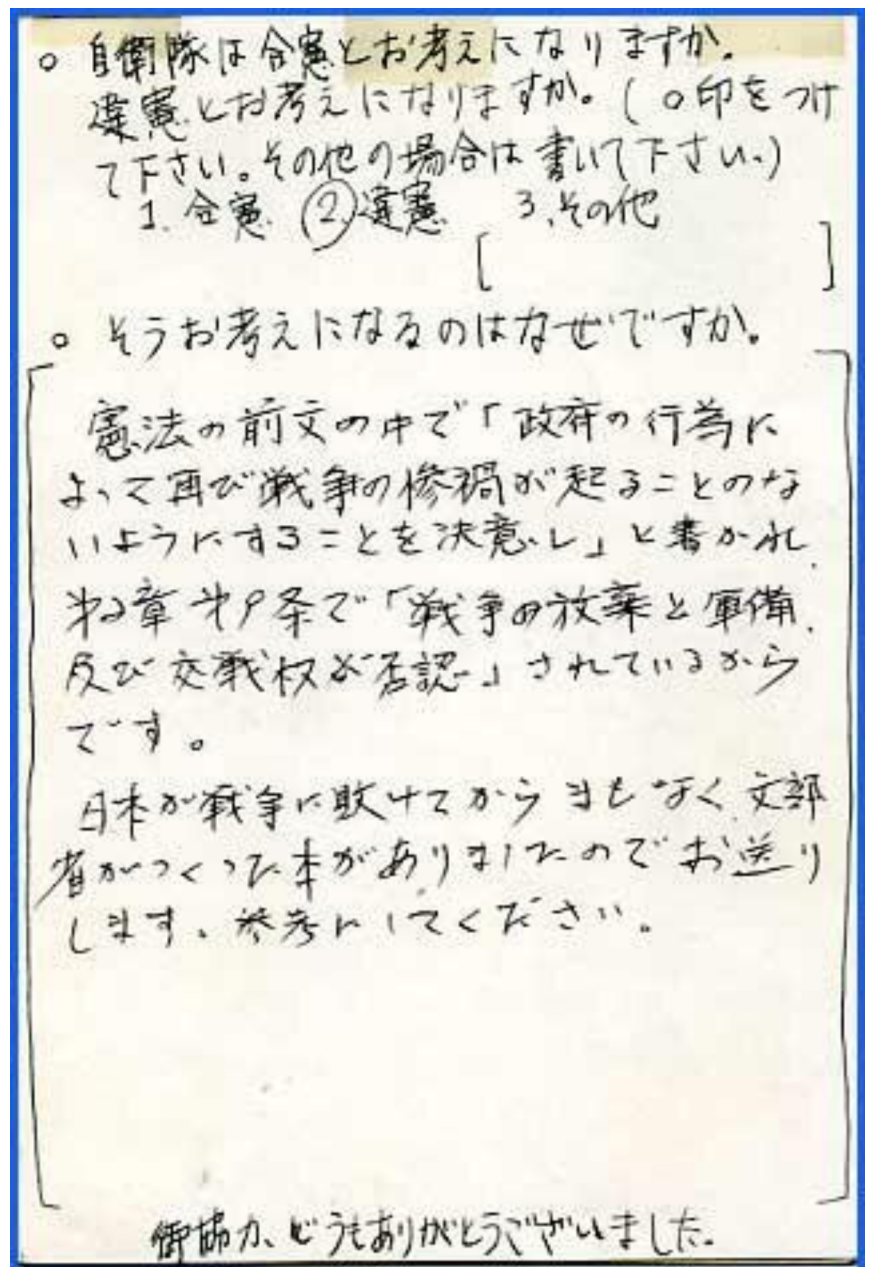 ○ 自衛隊は合憲とお考えになりますか。
違憲とお考えになりますか。(○印をつけ
て下さい。その他の場合は書いて下さい。)
1. 合憲 ②違憲 3.その他
[ ]
○ そうお考えになるのはなぜですか。
憲法の前文の中で「政府の行為に
よって再び戦争の惨禍が起ることのな
いようにすることを決意し」と書かれ、
第2章第9条で「戦争の放棄と軍備、
及び交戦权が否認」されているから
です。
日本が戦争に敗けてからまもなく、文部
省がつくった本がありましたのでお送り
します、参考にしてください。
御協力、どうもありがとうございました。